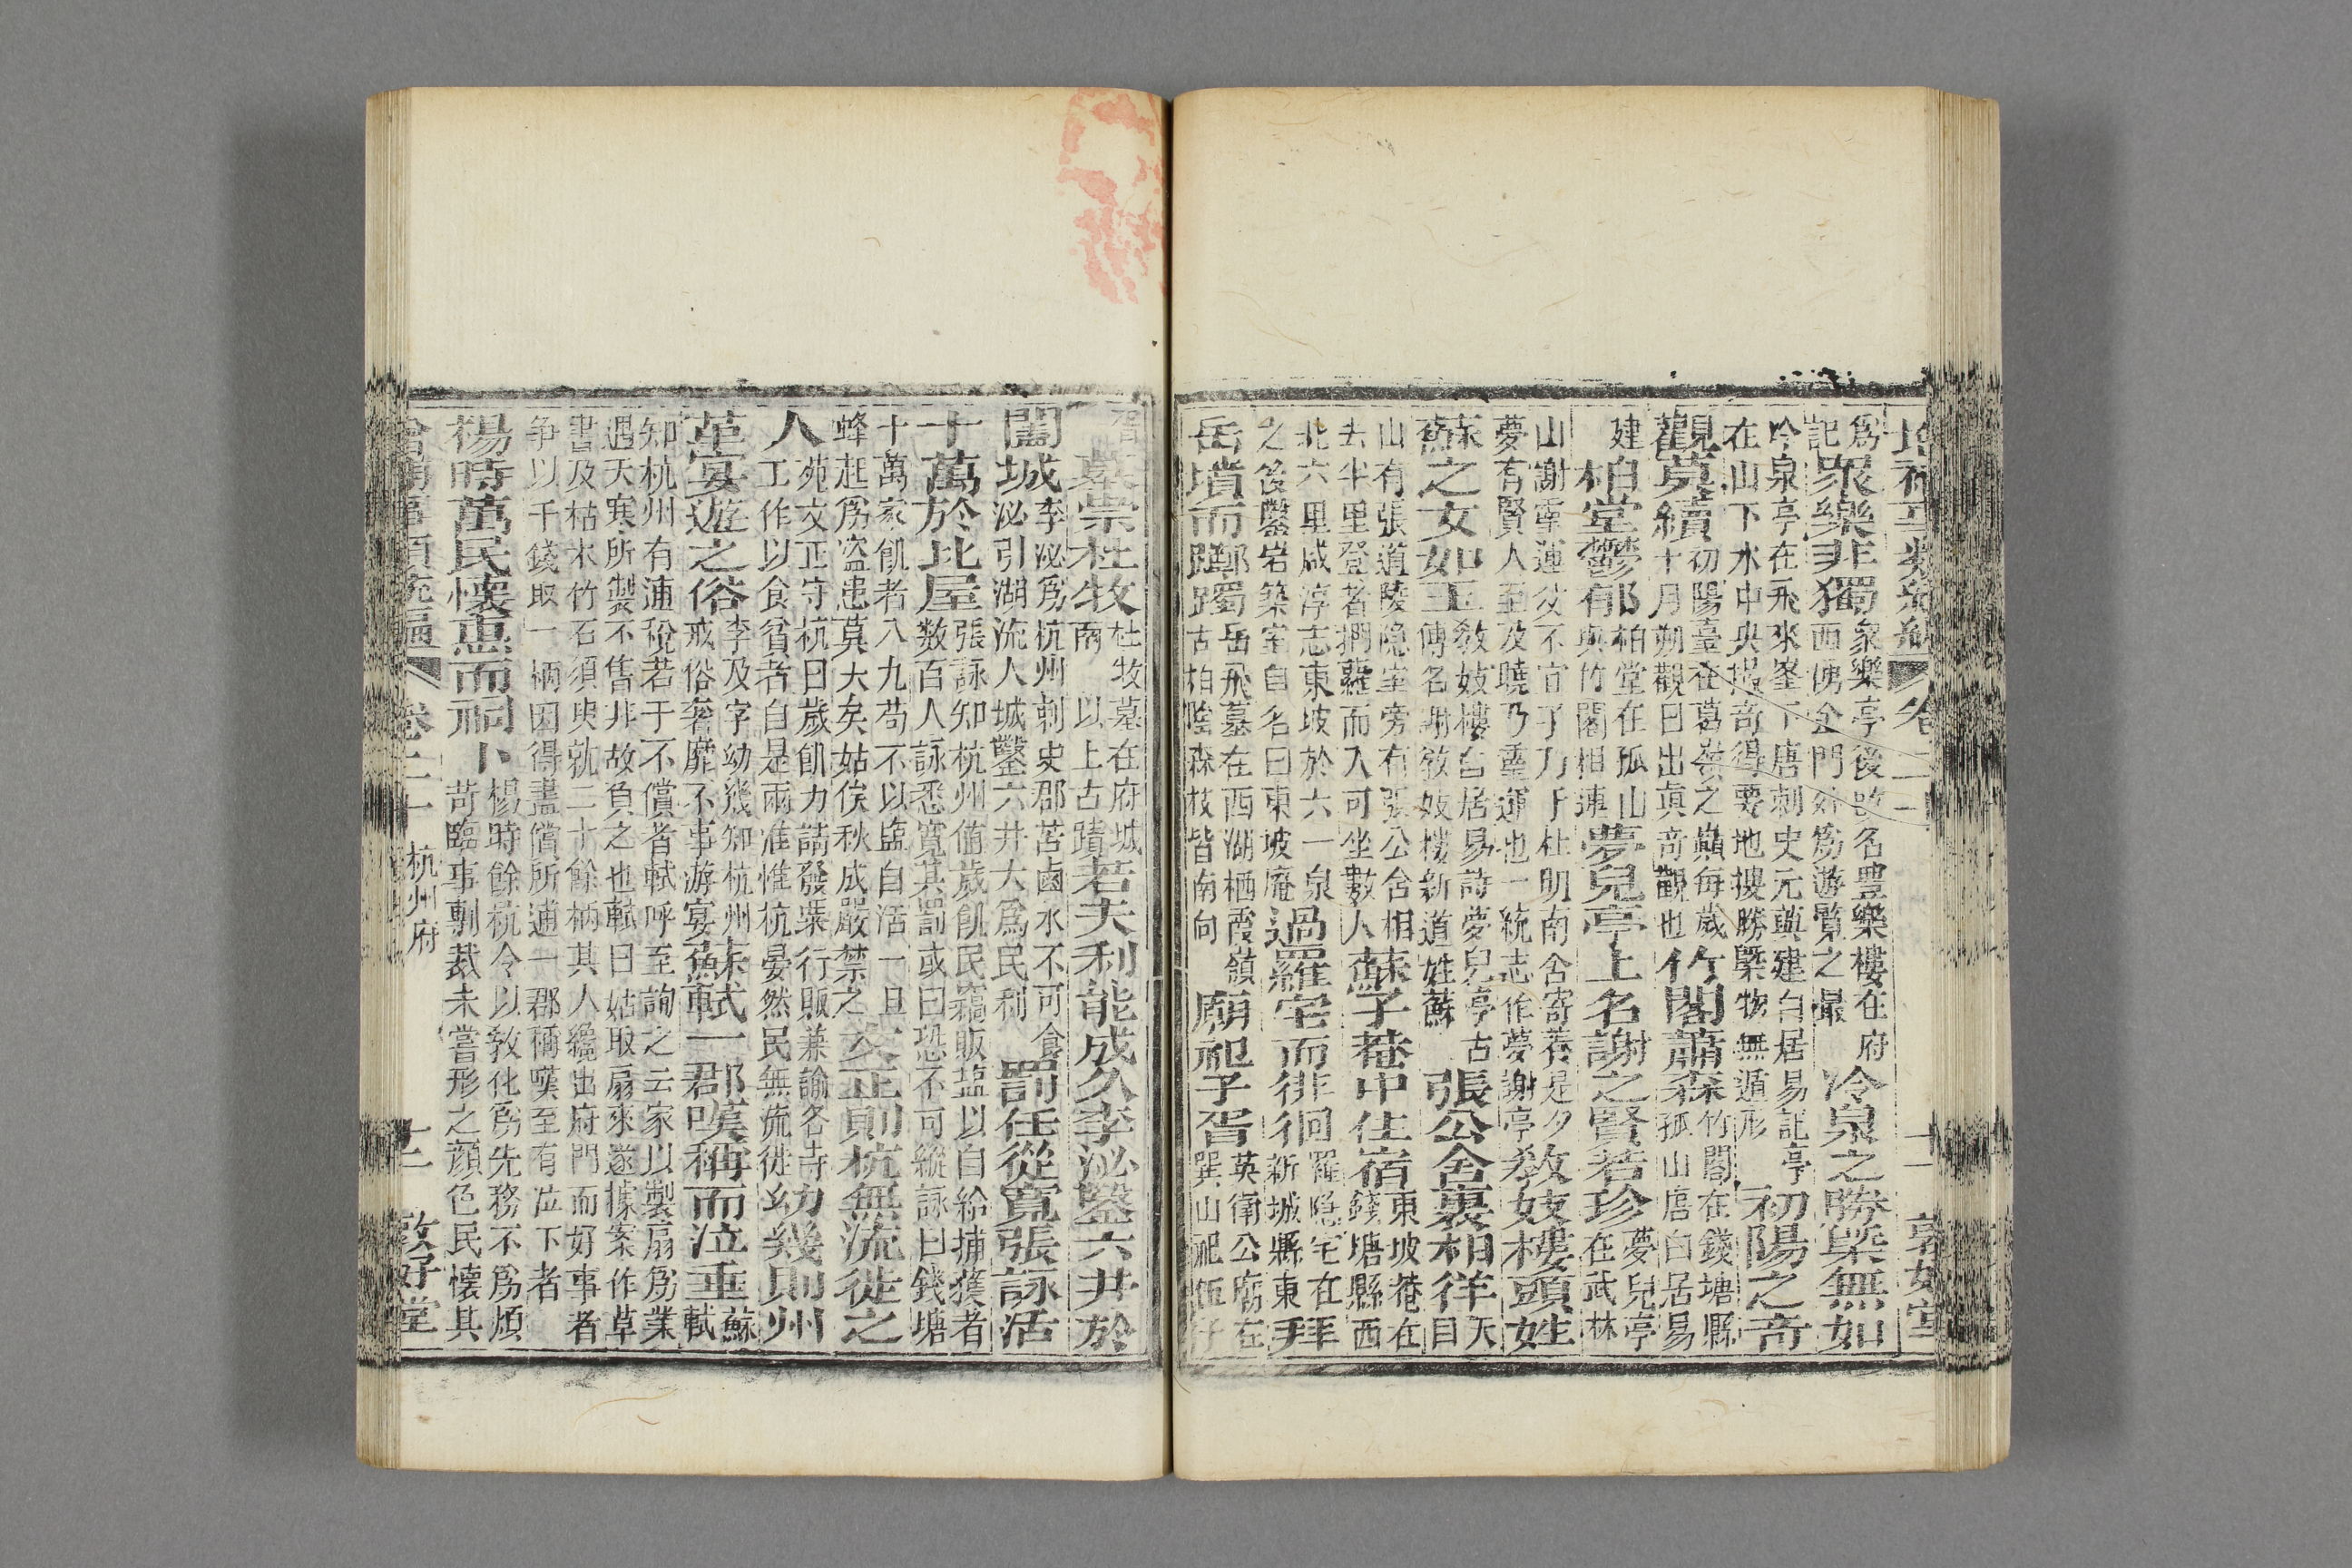 爲記衆樂非獨衆樂亭後改名豊樂樓在府西湧金門外爲遊覧之最冷泉之勝槩無如
冷泉亭在飛來峯下唐刺史元藇建白居易記亭在山下水中央撮竒得要地搜勝槩物無遁形初陽之竒
觀莫續初陽臺在葛嶺之巔毎歲十月朔觀日出眞竒觀也竹閣蕭森竹閣在錢塘縣孤山唐白居易
建柏堂鬱郁柏堂在孤山與竹閣相連夢兒亭上名謝之賢若珍夢兒亭在武林
山謝靈運父不宜子乃于杜明南舍寄養是夕夢有賢人至及曉乃靈運也一統志作夢謝亭敎妓樓頭姓
蘇之女如玉敎妓樓白居易詩夢兒亭古傳名謝敎妓樓新道姓蘇張公舍裏相徉天目
山有張道陵隐室旁有張公舍相去半里登者捫蘿而入可坐數人蘇子菴中住宿東坡菴在錢塘縣西
北六里咸淳志東坡於六一泉之後鑿岩築室自名曰東坡庵過羅宅而徘徊羅隐宅在新城縣東拜
岳墳而躑躅岳飛墓在西湖栖霞嶺古柏陰森枝皆南向廟祀子胥英衛公廟在巽山祀伍子
胥墓崇杜牧杜牧墓在府城南以上古蹟若夫利能成久李泌鑿六井於
闔城李泌爲杭州刺史郡苦鹵水不可食泌引湖流人城鑿六井大爲民利罰任從寬張詠活
十萬於比屋張詠知杭州備歲飢民竊販塩以自給捕獲者数百人詠悉寬其罰或曰恐不可縱詠曰錢塘
十萬家飢者八九苟不以塩自活一旦蜂起爲盗患莫大矣姑俟秋成嚴禁之文正則杭無流徙之
人范文正守杭日歲飢力請發粟行賑兼諭各寺工作以食貧者自是兩淮惟杭晏然民無流徙幼幾則州
革宴遊之俗李及字幼幾知杭州戒俗奢靡不事游宴蘇軾一郡嘆稱而泣垂蘇軾
知杭州有逋稅若于不償者軾呼至詢之云家以製扇爲業遇天寒所製不售非故負之也軾曰姑取扇來遂據案作草
書及枯木竹石須臾就二十餘柄其人纔出府門而好事者争以千錢取一柄因得盡償所逋一郡稱嘆至有泣下者
楊時萬民懷惠而祠卜楊時餘杭令以敎化爲先務不爲煩苛臨事剸裁未嘗形之顔色民懷其
卷二 杭州府 十二 敦好堂